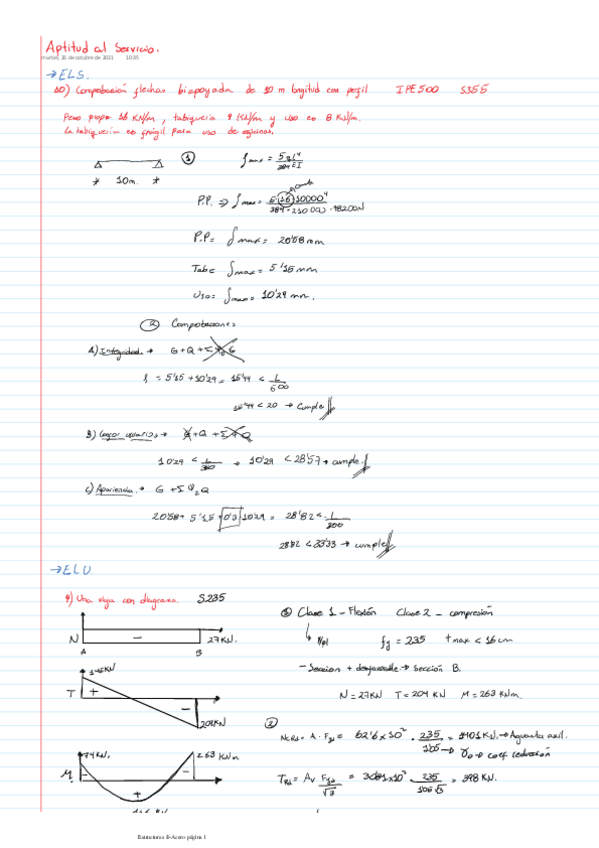 Aptitud al Servicio.
martes, 26 de octubre de 2021 10:35
→ELS.
10) Comprobación flechas biapoyada de 10 m longitud con perfil IPE500 S355
Peso propio 16 KN/m, tabiquería 4 KN/m y uso es 8 KN/m.
La tabiquería es frágil para uso de oficinas.
① fmax = 5ql⁴/384EI
10m.
P.P. ⇒ fmax = 5·(16)·10000⁴/384·210000·48200
P.P = fmax = 20'58 mm
Tab = fmax = 5'15 mm
Uso = fmax = 10'29 mm.
② Comprobaciones
A) Integridad → G+Q+
f = 5'15 + 10'29 = 15'44 < L/600
15'44 < 20 → Cumple
B) Confort usuarios → +Q+
10'29 < L/350 → 10'29 < 28'57 → cumple.
C) Apariencia. → G + ΣΨ₂Q
20'58 + 5'15 + 0'3 10'29 = 28'82 < L/300
28'82 < 33'33 → cumple
→ELU
9) Una viga con diagrama. S235
① Clase 1 - Flexión Clase 2 - compresión
N − 27KN.
A B
fy = 235 tmax < 16 mm
- Sección + desfavorable → Sección B.
145KN
T + −
204KN
N = 27KN T = 204 KN M = 263 KNm
②
NcRd = A · Fyd = 62'6×10² · 235/1'05 = 1401 KN. → Aguanta axil.
→ γ0 → coef reducción
74KN. 263 KNm
M − + −
TRd = Av Fyd/√3 = 3081×10² · 235/1'05√3 = 398 KN.
Estructuras II-Acero página 1